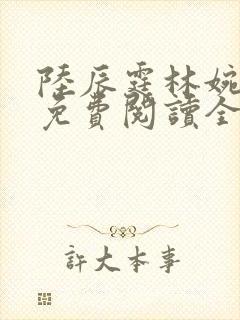 陸辰霆林婉
免費閱讀全
許大本事